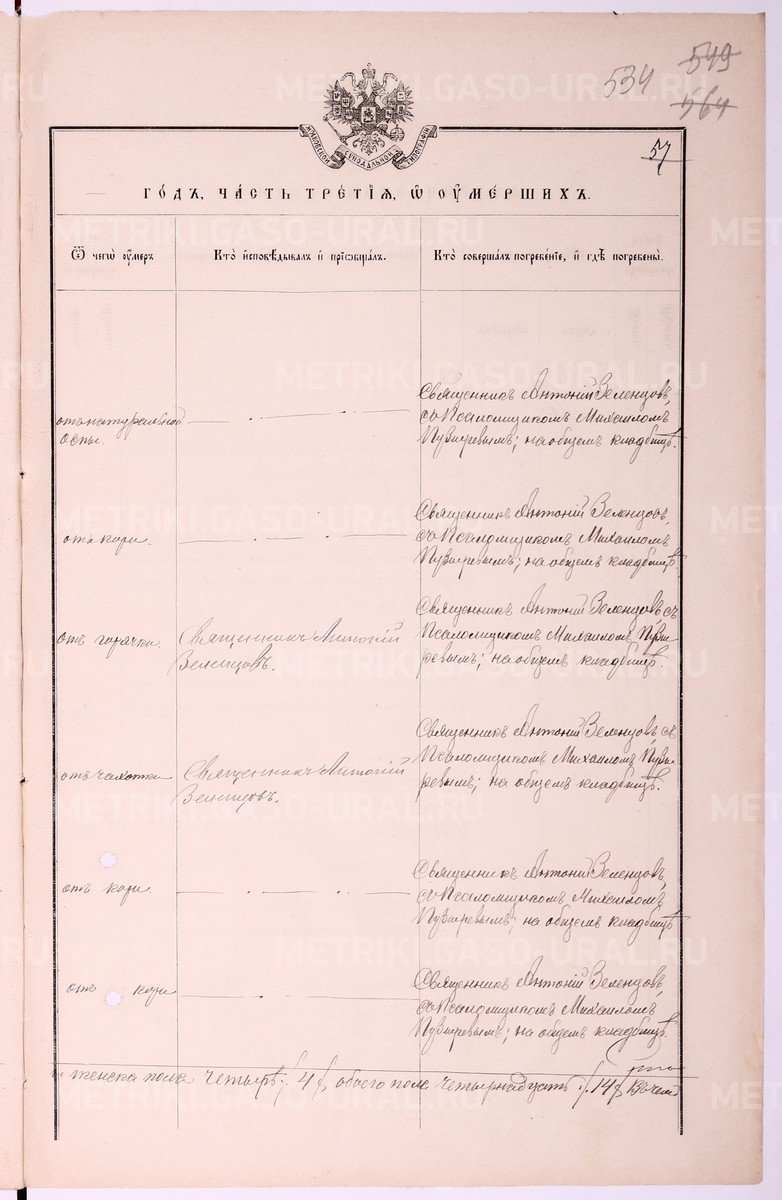 534
549
564
МОСКОВСКОЙ СУНОДАЛЬНОЙ ТИПОГРАФІИ
57
ГО́ДЪ, ЧА́СТЬ ТРЕ́ТІѦ, Ѿ ОУ҆МЕ́РШИХЪ.
Ѿ чегѡ̀ ᲂу҆́меръ
Кто̀ и҆сповѣ́дывалъ и҆ прїѡбща́лъ.
Кто̀ соверша́лъ погребе́нїе, и҆ гдѣ̀ погребены̀.
отъ натуральной
оспы.
Священникъ Антоній Зеленцовъ,
съ Псаломщикомъ Михаиломъ
Пузыревымъ; на общемъ кладбищѣ.
отъ кори.
Священникъ Антоній Зеленцовъ,
съ Псаломщикомъ Михаиломъ
Пузыревымъ; на общемъ кладбищѣ.
отъ горячки.
Священникъ Антоній
Зеленцовъ.
Священникъ Антоній Зеленцовъ съ
Псаломщикомъ Михаиломъ Пузы-
ревымъ; на общемъ кладбищѣ.
отъ чахотки
Священникъ Антоній
Зеленцовъ.
Священникъ Антоній Зеленцовъ съ
Псаломщикомъ Михаиломъ Пузы-
ревымъ; на общемъ кладбищѣ.
отъ кори
Священникъ Антоній Зеленцовъ,
съ Псаломщикомъ Михаиломъ
Пузыревымъ; на общемъ кладбищѣ
отъ кори
Священникъ Антоній Зеленцовъ,
съ Псаломщикомъ Михаиломъ
Пузыревымъ; на общемъ кладбищѣ.
женска пола четыре /4/ обоего пола четырнадцать /14/ въ чемъ
METRIKI.GASO-URAL.RU